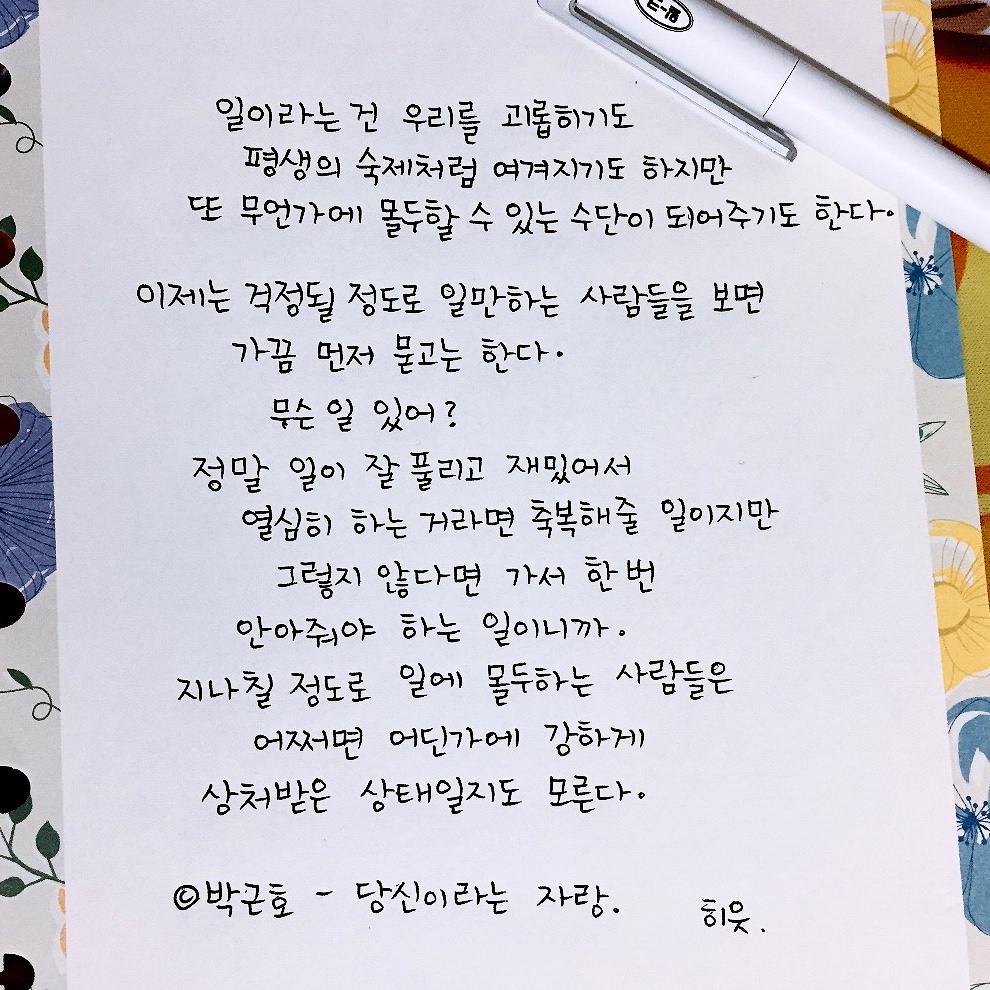 일이라는 건 우리를 괴롭히기도
평생의 숙제처럼 여겨지기도 하지만
또 무언가에 몰두할 수 있는 수단이 되어주기도 한다.
이제는 걱정될 정도로 일만하는 사람들을 보면
가끔 먼저 묻고는 한다.
무슨 일 있어?
정말 일이 잘 풀리고 재밌어서
열심히 하는 거라면 축복해줄 일이지만
그렇지 않다면 가서 한 번
안아줘야 하는 일이니까.
지나칠 정도로 일에 몰두하는 사람들은
어쩌면 어딘가에 강하게
상처받은 상태일지도 모른다.
©박근호 - 당신이라는 자랑.
히읏.